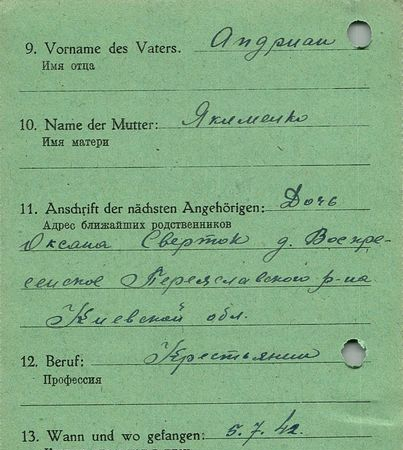 9. Vorname des Vaters. Андриан
Имя отца
10. Name der Mutter: Якименко
Имя матери
11. Anschrift der nächsten Angehörigen: Дочь
Адрес ближайших родственников
Оксана Сверток д. Воскре-
сенское Переяславского р-на
Киевской обл.
12. Beruf: Крестьянин
Профессия
13. Wann und wo gefangen: 5.7.42.